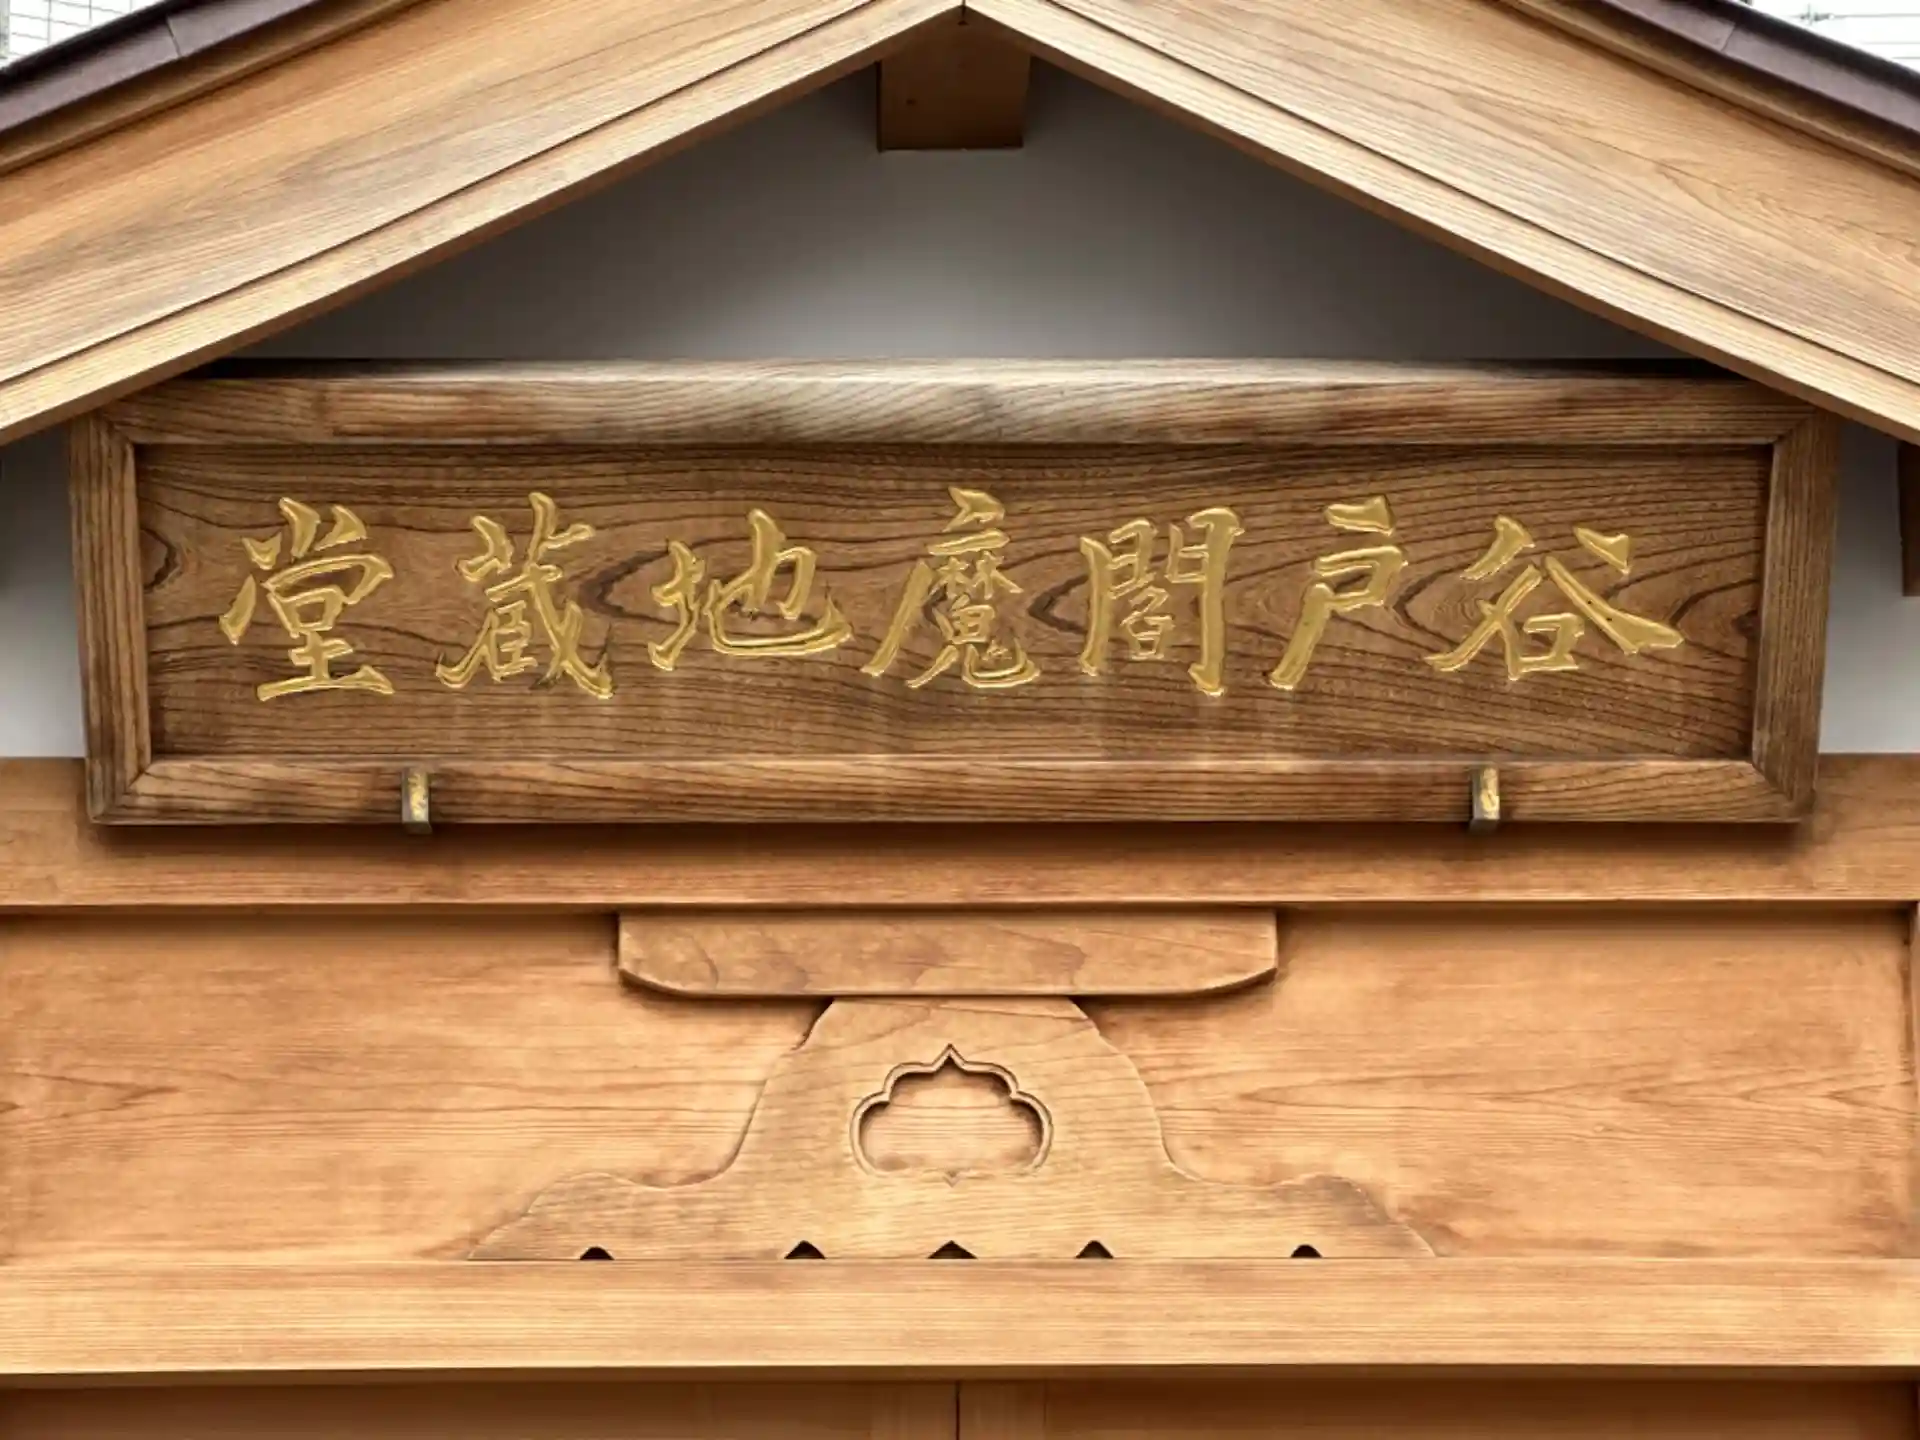 谷戸閻魔地蔵堂